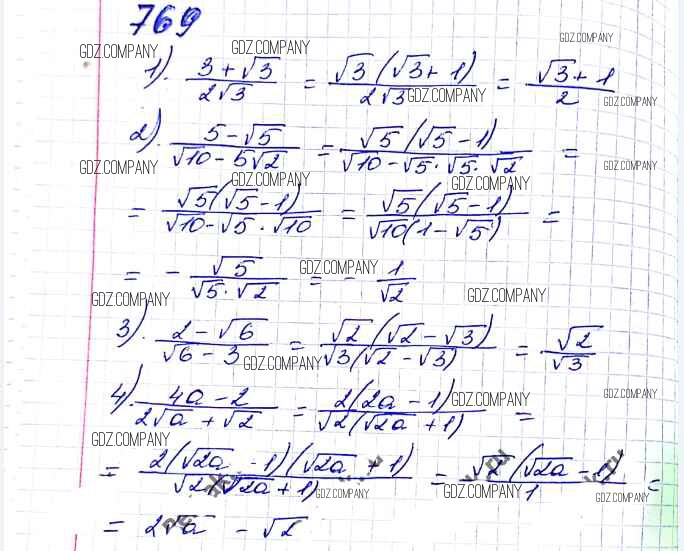 769
GDZ.COMPANY GDZ.COMPANY GDZ.COMPANY
1). (3 + √3)/(2√3) = (√3 (√3 + 1))/(2√3) = (√3 + 1)/2
GDZ.COMPANY GDZ.COMPANY
2). (5 - √5)/(√10 - 5√2) = (√5 (√5 - 1))/(√10 - √5 · √5 · √2) =
GDZ.COMPANY GDZ.COMPANY
GDZ.COMPANY GDZ.COMPANY
= (√5 (√5 - 1))/(√10 - √5 · √10) = (√5 (√5 - 1))/(√10 (1 - √5)) =
= - √5/(√5 · √2) = - 1/√2
GDZ.COMPANY
GDZ.COMPANY GDZ.COMPANY
3). (2 - √6)/(√6 - 3) = (√2 (√2 - √3))/(√3 (√2 - √3)) = √2/√3
GDZ.COMPANY
4). (4a - 2)/(2√a + √2) = (2(2a - 1))/(√2 (√2a + 1)) =
GDZ.COMPANY GDZ.COMPANY
GDZ.COMPANY
= (2(√2a - 1)(√2a + 1))/(√2 (√2a + 1)) = (√2 (√2a - 1))/1 =
GDZ.COMPANY GDZ.COMPANY GDZ.COMPANY
= 2√a - √2